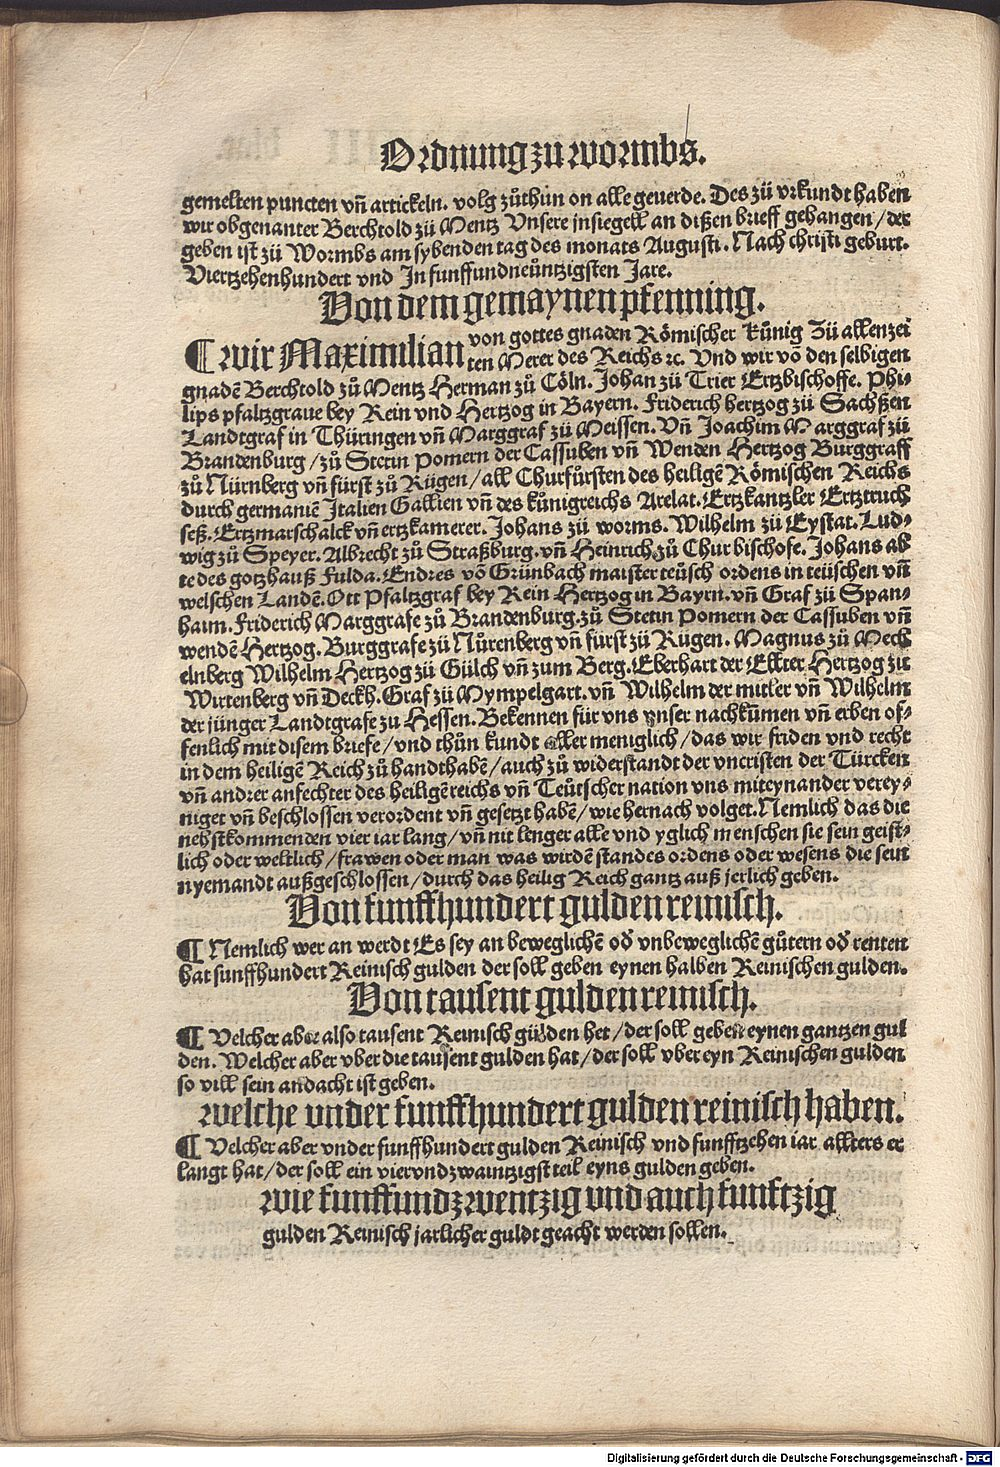 Ordnung zu wormbs.
gemelten puncten vñ artickeln. volg zůthůn on alle geuerde. Des zů vrkundt haben
wir obgenanter Berchtold zů Mentz Vnsere insiegell an dißen brieff gehangen / der
geben ist zů Wormbs am sybenden tag des monats Augusti. Nach christi geburt.
Viertzehenhundert vnd Jn funffundneůntzigsten Jare.
Von dem gemaynen pfenning.
¶ Wir Maximilian von gottes gnaden Römischer Kůnig Zů allenzei
ten Merer des Reichs ⁊c. Vnd wir võ den selbigen
gnadẽ Berchtold zů Mentz Herman zů Cöln. Johan zů Trier Ertzbischoffe. Phi-
lips pfaltzgraue bey Rein vnd Hertzog in Bayern. Friderich hertzog zů Sachßen
Landtgraf in Thüringen vñ Marggraf zů Meissen. Vñ Joachim Marggraf zů
Brandenburg / zů Stetin Pomern der Cassuben vñ Wenden Hertzog Burggraff
zů Nürnberg vñ fürst zů Rügen / all Churfürsten des heiligẽ Römischen Reichs
durch germaniẽ Jtalien Gallien vñ des kůnigreichs Arelat. Ertzkantzler Ertztruch
seß. Ertzmarschalck vñ ertzkamerer. Johans zů worms. Wilhelm zů Eystat. Lud-
wig zů Speyer. Albrecht zů Straßburg. vñ Heinrich zů Chur bischofe. Johans ab
te des gotzhauß Fulda. Endres võ Grünbach maister teüsch ordens in teüschen vñ
welschen Landẽ. Ott Pfaltzgraf bey Rein Hertzog in Bayrn. vñ Graf zů Span-
haim. Friderich Marggrafe zů Brandenburg. zů Stetin Pomern der Cassuben vñ
wendẽ Hertzog. Burggrafe zů Nůrenberg vñ fürst zů Rügen. Magnus zů Mech
elnberg Wilhelm Hertzog zů Gülch vñ zum Berg. Eberhart der Ellter Hertzog zu
Wirtenberg vñ Deckh. Graf zů Mympelgart. vñ Wilhelm der mitler vñ Wilhelm
der jünger Landtgrafe zu Hessen. Bekennen für vns vnser nachkům̃en vñ erben of-
fenlich mit disem briefe / vnd thůn kundt aller meniglich / das wir friden vnd recht
in dem heiligẽ Reich zů handthabẽ / auch zů widerstandt der vncristen der Türcken
vñ andrer anfechter des heiligẽ reichs vñ Teůtscher nation vns miteynander verey-
niget vñ beschlossen verordent vñ gesetzt habẽ / wie hernach volget. Nemlich das die
nehstkommenden vier iar lang / vñ nit lenger alle vnd yglich menschen sie sein geist-
lich oder weltlich / frawen oder man was wirdẽ standes ordens oder wesens die sein
nyemandt außgeschlossen / durch das heilig Reich gantz auß jerlich geben.
Von funffhundert gulden reinisch.
¶ Nemlich wer an werdt Es sey an beweglichẽ od̄ vnbeweglichẽ gůtern od̄ renten
hat funffhundert Reinisch gulden der soll geben eynen halben Reinischen gulden.
Von tausent gulden reinisch.
¶ Welcher aber also tausent Reinisch gulden het / der soll geben eynen gantzen gul
den. Welcher aber vber die tausent gulden hat / der soll vber eyn Reinischen gulden
so vill sein andacht ist geben.
welche vnder funffhundert gulden reinisch haben.
¶ Welcher aber vnder funffhundert gulden Reinisch vnd funfftzehen iar allters er
langt hat / der soll ein viervndzwaintzigst teil eyns gulden geben.
wie funffundzwentzig vnd auch funftzig
gulden Reinisch jarlicher guldt geacht werden sollen.
Digitalisierung gefördert durch die Deutsche Forschungsgemeinschaft - DFG